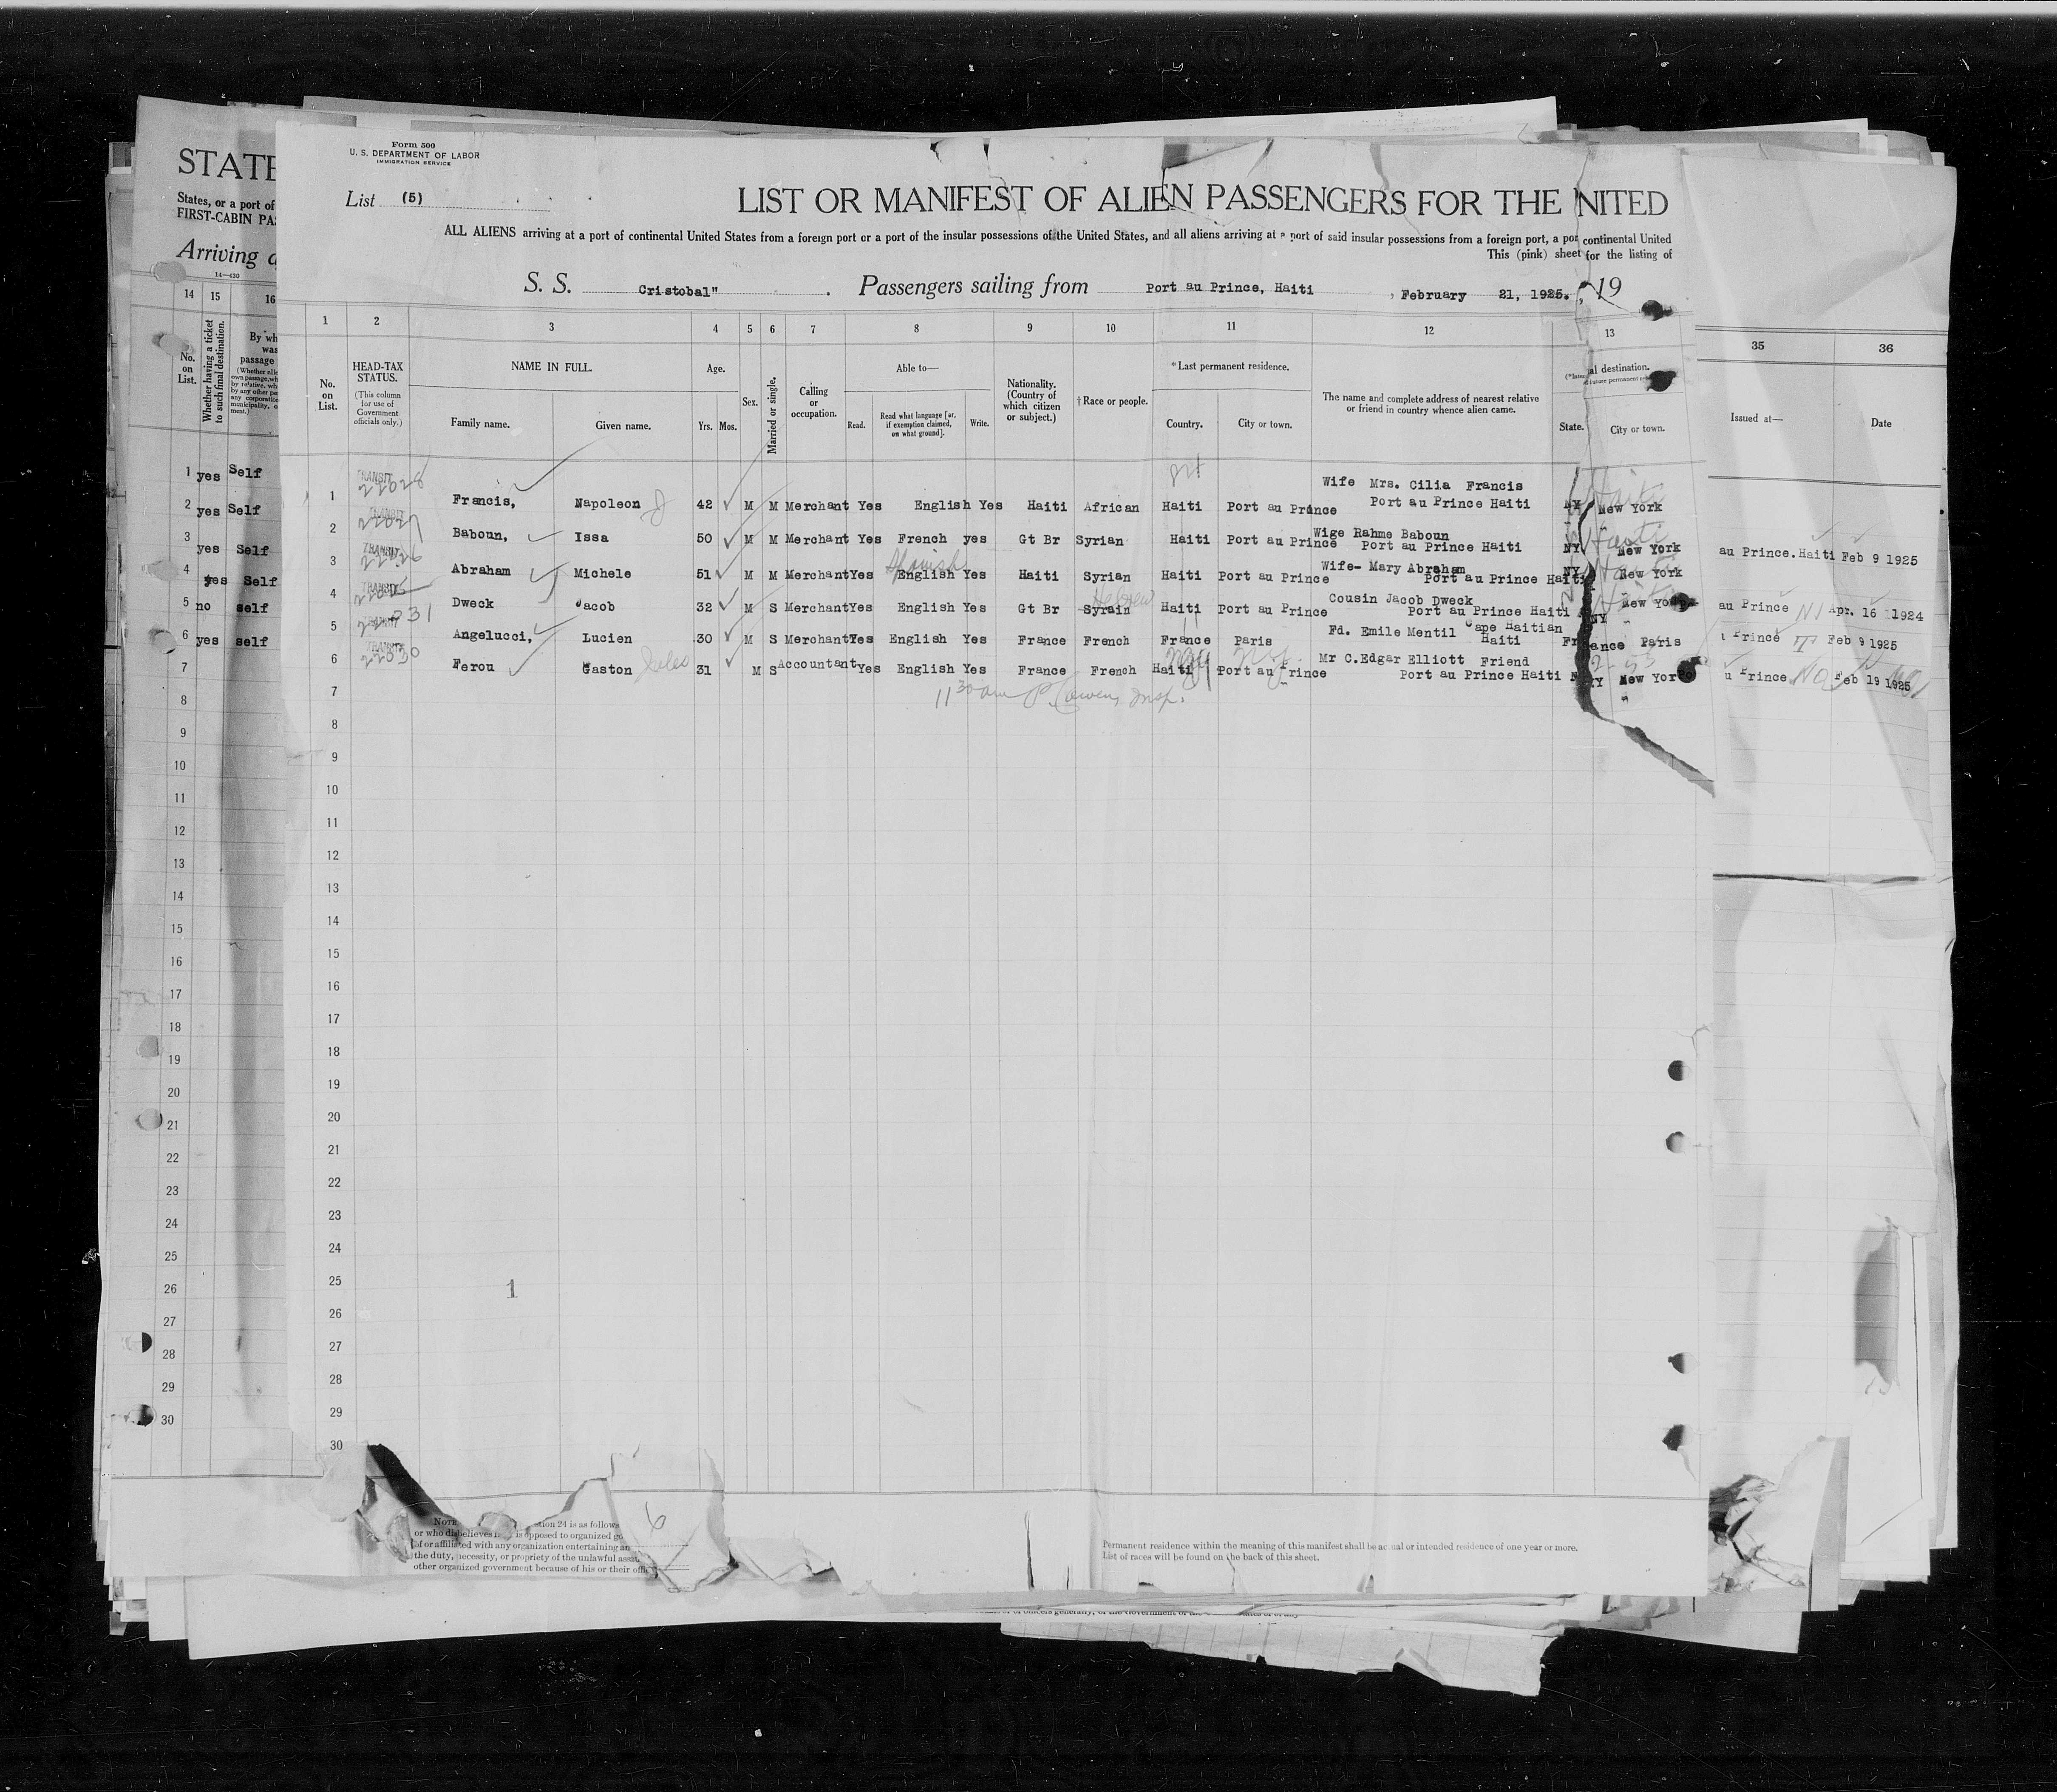 Form 500
U. S. DEPARTMENT OF LABOR
IMMIGRATION SERVICE
STATE
States, or a port of
FIRST-CABIN PA
Arriving a
List (5)
LIST OR MANIFEST OF ALIEN PASSENGERS FOR THE NITED
ALL ALIENS arriving at a port of continental United States from a foreign port or a port of the insular possessions of the United States, and all aliens arriving at a port of said insular possessions from a foreign port, a por continental United
This (pink) sheet for the listing of
S. S. Cristobal" . Passengers sailing from Port au Prince, Haiti , February 21, 1925. , 19
14—430
14 15 16
1 2 3 4 5 6 7 8 9 10 11 12 13 35 36
No. on List.
Whether having a ticket to such final destination.
By wh
was
passage
No. on List.
HEAD-TAX STATUS.
(This column for use of Government officials only.)
NAME IN FULL.
Family name.
Given name.
Age.
Yrs. Mos.
Sex.
Married or single.
Calling or occupation.
Able to—
Read.
Read what language [or, if exemption claimed, on what ground].
Write.
Nationality. (Country of which citizen or subject.)
†Race or people.
*Last permanent residence.
Country.
City or town.
The name and complete address of nearest relative or friend in country whence alien came.
al destination.
State.
City or town.
Issued at—
Date
1 yes Self
2 yes Self
3 yes Self
4 yes Self
5 no self
6 yes self
7
8
9
10
11
12
13
14
15
16
17
18
19
20
21
22
23
24
25
26
27
28
29
30
TRANSIT
22028
1 Francis, Napoleon J 42 M M Merchant Yes English Yes Haiti African Haiti Port au Prince
Wife Mrs. Cilia Francis
Port au Prince Haiti NY New York
Haiti
TRANSIT
2 Baboun, Issa 50 M M Merchant Yes French yes Gt Br Syrian Haiti Port au Prince
Wige Rahme Baboun
Port au Prince Haiti NY New York
Haiti
au Prince. Haiti Feb 9 1925
TRANSIT
3 Abraham Michele 51 M M Merchant Yes English Yes Haiti Syrian Haiti Port au Prince
Spanish
Wife- Mary Abraham
Port au Prince Haiti NY New York
TRANSIT
4 Dweck Jacob 32 M S Merchant Yes English Yes Gt Br Syrain Haiti Port au Prince
Hebrew
Cousin Jacob Dweck
Port au Prince Haiti NY New York
au Prince Apr. 16 1924
5 Angelucci, Lucien 30 M S Merchant Yes English Yes France French France Paris
Fd. Emile Mentil Cape Haitian
Haiti France Paris
Prince Feb 9 1925
TRANSIT
22030
6 Ferou Gaston Jules 31 M S Accountant Yes English Yes France French Haiti Port au Prince
Mr C.Edgar Elliott Friend
Port au Prince Haiti NY New York
u Prince Feb 19 1925
11 30 am Insp.
7
8
9
10
11
12
13
14
15
16
17
18
19
20
21
22
23
24
25
1
26
27
28
29
30
6
NOTE tion 24 is as follows
or who disbelieves in is opposed to organized go
of or affiliated with any organization entertaining an
the duty, necessity, or propriety of the unlawful assa
other organized government because of his or their offi
Permanent residence within the meaning of this manifest shall be actual or intended residence of one year or more.
List of races will be found on the back of this sheet.